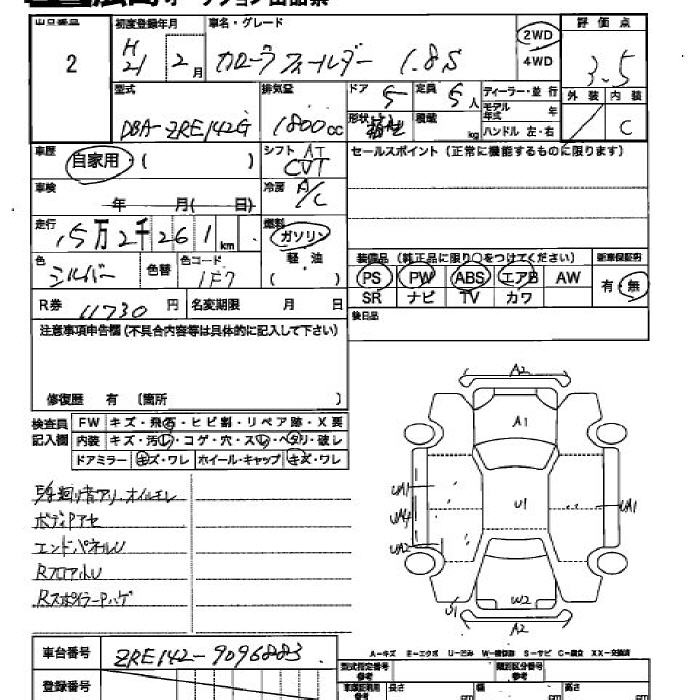 広島オークション出品票
出品番号 初度登録年月 車名・グレード 評価点
2 H21 2月 カローラフィールダー 1.8S 2WD 4WD 3.5
型式 排気量 ドア 5 定員 5人 ディーラー・並行 外装 内装
DBA-ZRE142G 1800cc 形状 積載 kg モデル年式 年 C
ハンドル 左・右
車歴 自家用 ( ) シフト AT CVT セールスポイント (正常に機能するものに限ります)
車検 年 月( 日) 冷房 A/C
走行 15万2千261km 燃料 ガソリン 軽油 ( )
色 シルバー 色替 色コード 1F7
装備品 (純正品に限り○をつけてください) 新車保証書
PS PW ABS エアB AW 有・無
SR ナビ TV カワ
R券 11730円 名変期限 月 日 後日品
注意事項申告欄 (不具合内容等は具体的に記入して下さい)
修復歴 有 〔箇所 〕
検査員記入欄 FW キズ・飛石・ヒビ割・リペア跡・X要
内装 キズ・汚レ・コゲ・穴・スレ・ヘタリ・破レ
ドアミラー キズ・ワレ ホイール・キャップ キズ・ワレ
A2
A1
UA1
UA4
UA2
U1
UA1
W2
U1
A2
オイルモレ
ボディPアセ
エンドパネルU
RフロアハU
RスポイラーPハゲ
A-キズ E-エクボ U-凹み W-補修跡 S-サビ C-腐食 XX-交換済
車台番号 ZRE142-9096883
登録番号
型式指定番号 参考 類別区分番号 参考
長さ cm 幅 cm 高さ cm